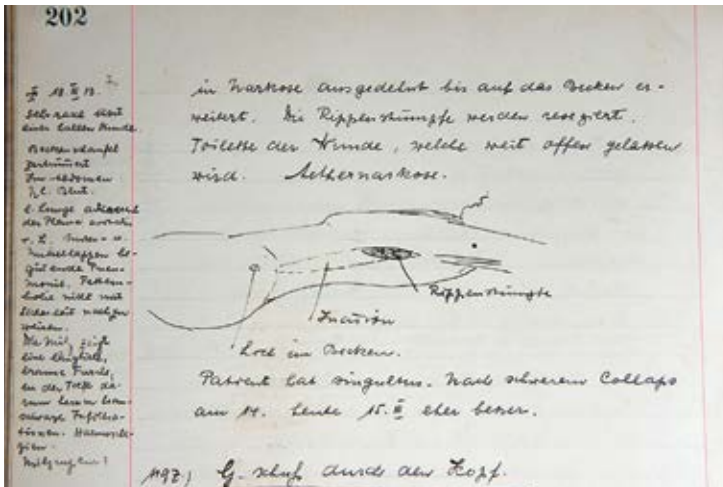 202
18 III 13.
Sehr rasch
einer halben Stunde.
Beckenschaufel
zertrümmert
Im Abdomen
Blut.
l. Lunge adhaerent
der Pleura
Mittellappen be-
ginnende Pneu-
monie. Fettem-
bolie nicht mit
Sicherheit nachzu
weisen.
Die Milz zeigt
eine längliche,
braune Furche,
in der Tiefe
Milzruptur!
in Narkose ausgedehnt bis auf das Becken er-
weitert. Die Rippenstümpfe werden reseziert.
Toilette der Wunde, welche weit offen gelassen
wird. Aethernarkose.
Rippenstümpfe
Incision
Loch im Becken.
Patient hat Singultus. Nach schwerem Collaps
am 14. heute 15. III eher besser.
1197) G. schuß durch den Kopf.